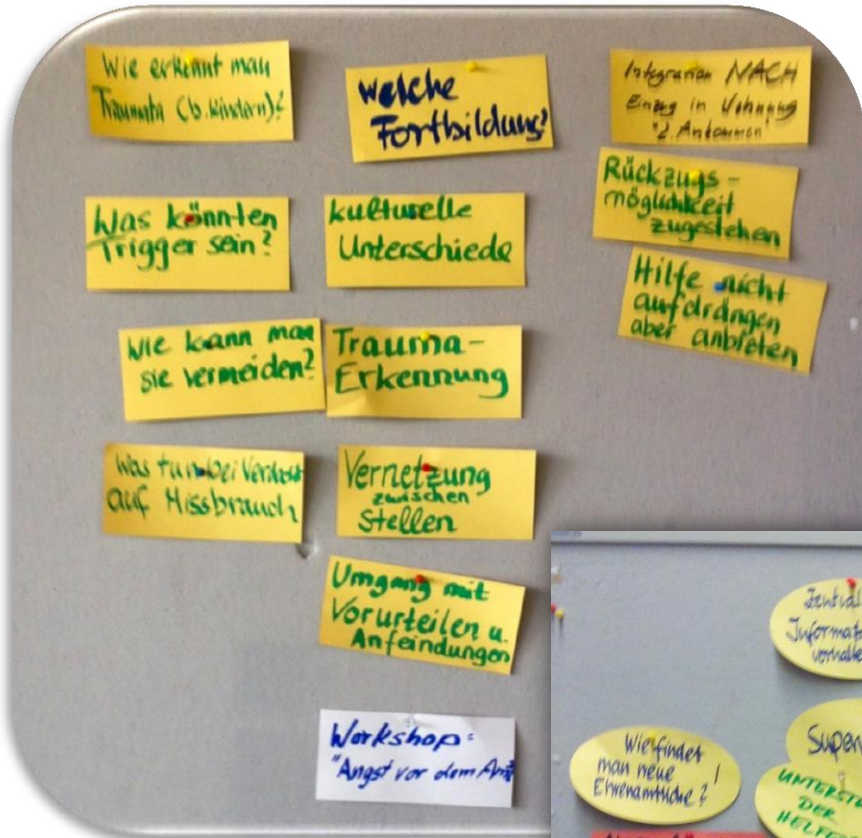 Wie erkennt man
Traumata (b. Kindern)?
Was könnten
Trigger sein?
Wie kann man
sie vermeiden?
Was tun bei Verdacht
auf Missbrauch
Welche
Fortbildung?
kulturelle
Unterschiede
Trauma-
Erkennung
Vernetzung
zwischen
Stellen
Umgang mit
Vorurteilen u.
Anfeindungen
Workshop:
"Angst vor dem Amt"
Integration NACH
Einzug in Wohnung
"2. Ankommen"
Rückzugs-
möglichkeit
zugestehen
Hilfe nicht
aufdrängen
aber anbieten
Wie findet
man neue !
Ehrenamtliche?
DER